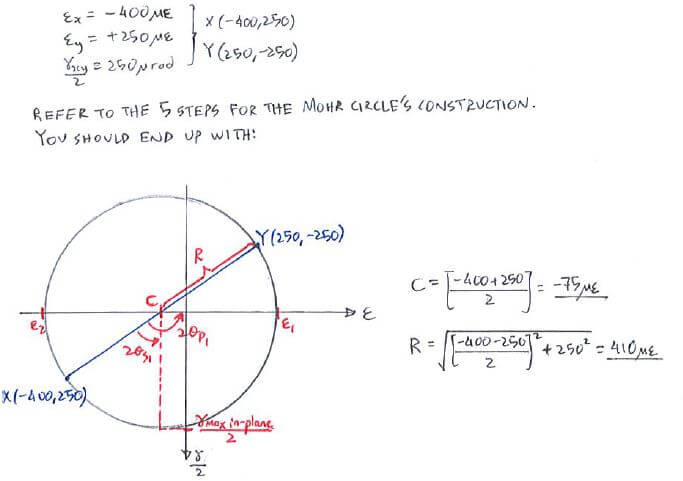 εx = -400με
εy = +250με
γxy/2 = 250μrad
X(-400,250)
Y(250,-250)
REFER TO THE 5 STEPS FOR THE MOHR CIRCLE'S CONSTRUCTION.
YOU SHOULD END UP WITH:
Y(250,-250)
R
C
ε
ε2
ε1
2θs1
2θp1
X(-400,250)
γmax in-plane/2
γ/2
C = [-400+250/2] = -75με
R = √[-400-250/2]² + 250² = 410με